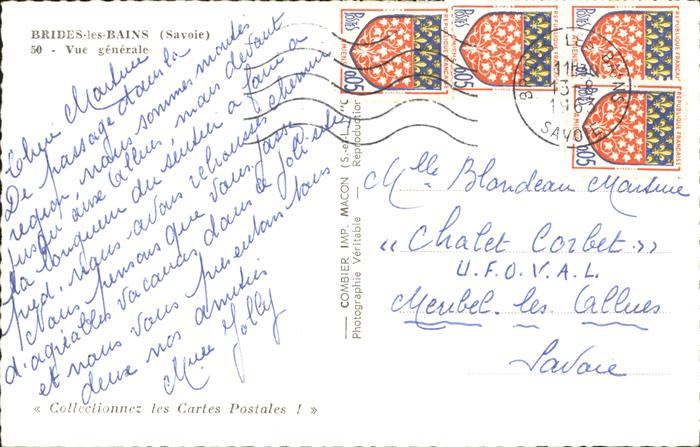 BRIDES-les-BAINS (Savoie)
50 - Vue générale
Chère Martine
De passage dans la
région nous sommes montés
jusqu'aux Allues, mais devant
la longueur du sentier à faire à
pied, nous avons rebroussé chemin
Nous pensons que vous passez
d'agréables vacances dans ce joli site
et nous vous présentons tous
deux nos amitiés
Mme Jolly
« Collectionnez les Cartes Postales ! »
COMBIER IMP. MACON (S.-et-L.) "C
Photographie Véritable — Reproduction
POSTES
0,05
REPUBLIQUE FRANÇAISE
POSTES
0,05
REPUBLIQUE FRANÇAISE
REPUBLIQUE FRANÇAISE
POSTES
0,05
REPUBLIQUE FRANÇAISE
BAINS
13
196
SAVOIE
Mlle Blondeau Martine
« Chalet Corbet »
U.F.O.V.A.L.
Meribel. les Allues
Savoie